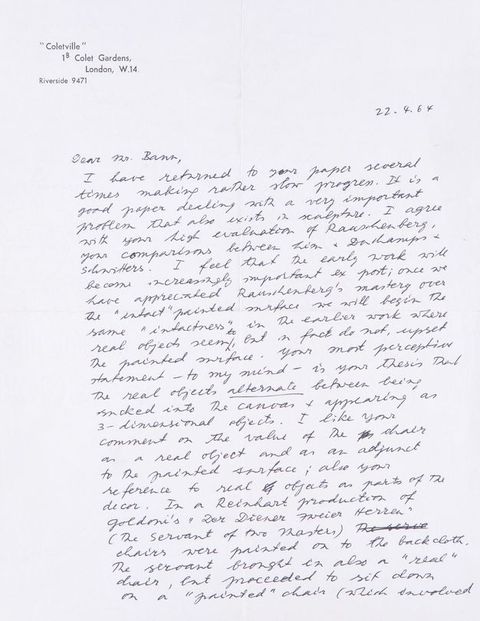 "Coletville"
1B Colet Gardens,
London, W.14.
Riverside 9471
22.4.64
Dear Mr. Bann,
I have returned to your paper several
times making rather slow progress. It is a
good paper dealing with a very important
problem that also exists in sculpture. I agree
with your high evaluation of Rauschenberg,
your comparisons between him & Duchamps &
Schwitters. I feel that the early work will
become increasingly important ex post; once we
have appreciated Rauschenberg's mastery over
the "intact" painted surface we will begin the
same "intactness" in the earlier work where
real objects seem to, but in fact do not, upset
the painted surface. Your most perceptive
statement - to my mind - is your thesis that
the real objects alternate between being
sucked into the canvas & appearing as
3-dimensional objects. I like your
comment on the value of the chair
as a real object and as an adjunct
to the painted surface; also your
reference to real objects as parts of the
decor. In a Reinhart production of
Goldoni's "Der Diener zweier Herren"
(The Servant of two Masters) The serve
chairs were painted on to the backcloth.
The servant brought in also a "real"
chair, but proceeded to sit down
on a "painted" chair (which involved